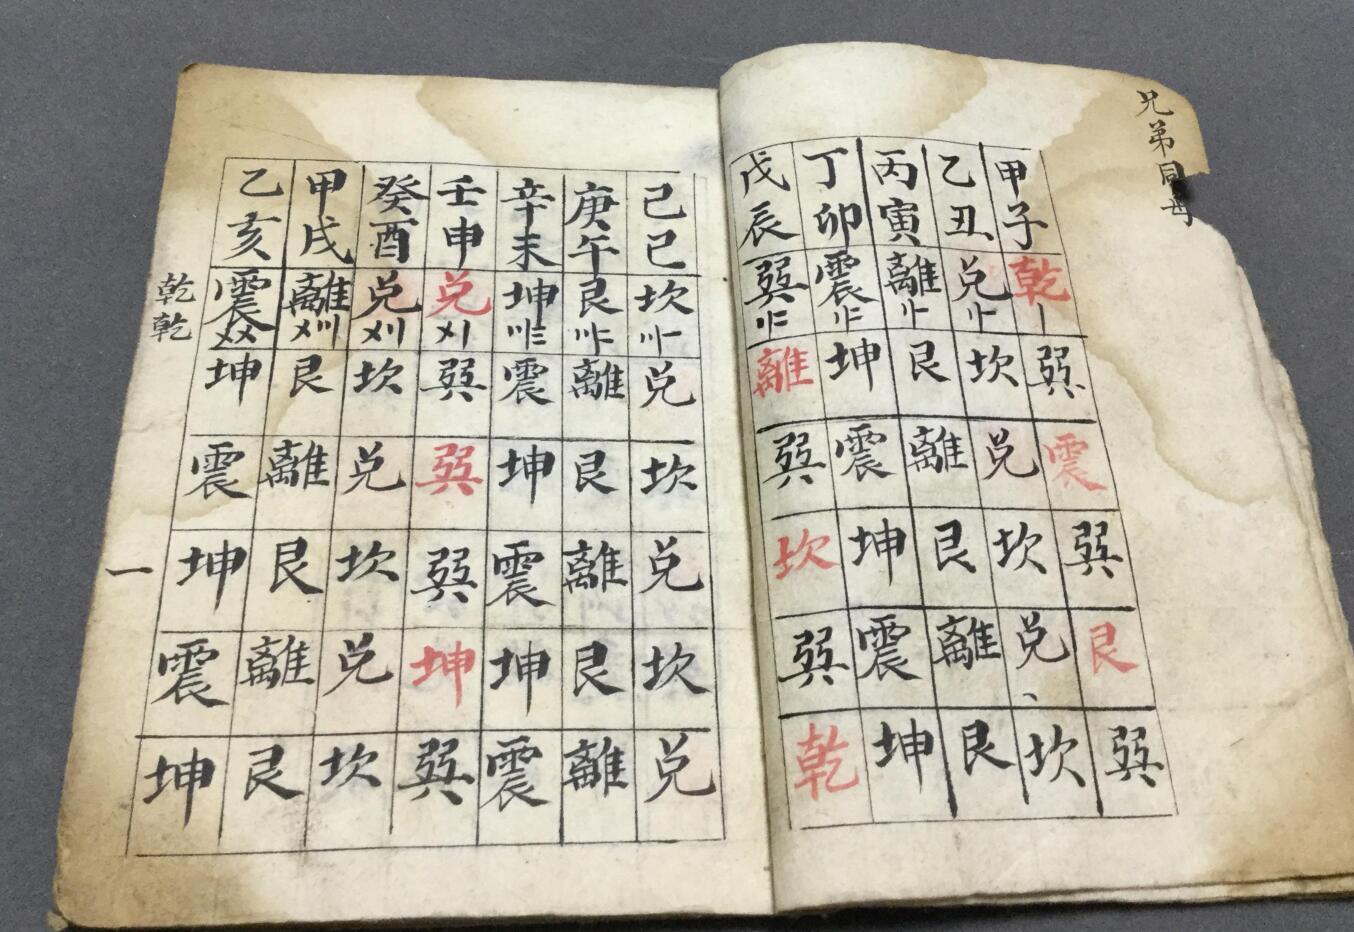 兄弟同母
甲子 乾 巽 震 巽 艮 巽
乙丑 兑 坎 兑 坎 兑 坎
丙寅 離 艮 離 艮 離 艮
丁卯 震 坤 震 坤 震 坤
戊辰 巽 離 巽 坎 巽 乾
己巳 坎 兑 坎 兑 坎 兑
庚午 艮 離 艮 離 艮 離
辛未 坤 震 坤 震 坤 震
壬申 兑 巽 巽 巽 坤 巽
癸酉 兑 坎 兑 坎 兑 坎
甲戌 離 艮 離 艮 離 艮
乙亥 震 坤 震 坤 震 坤
乾乾
一